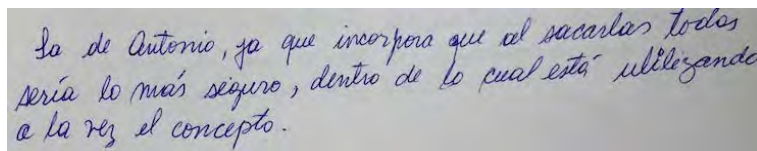 La de Antonio, ya que incorpora que al sacarlas todas
sería lo más seguro, dentro de lo cual está utilizando
a la vez el concepto.